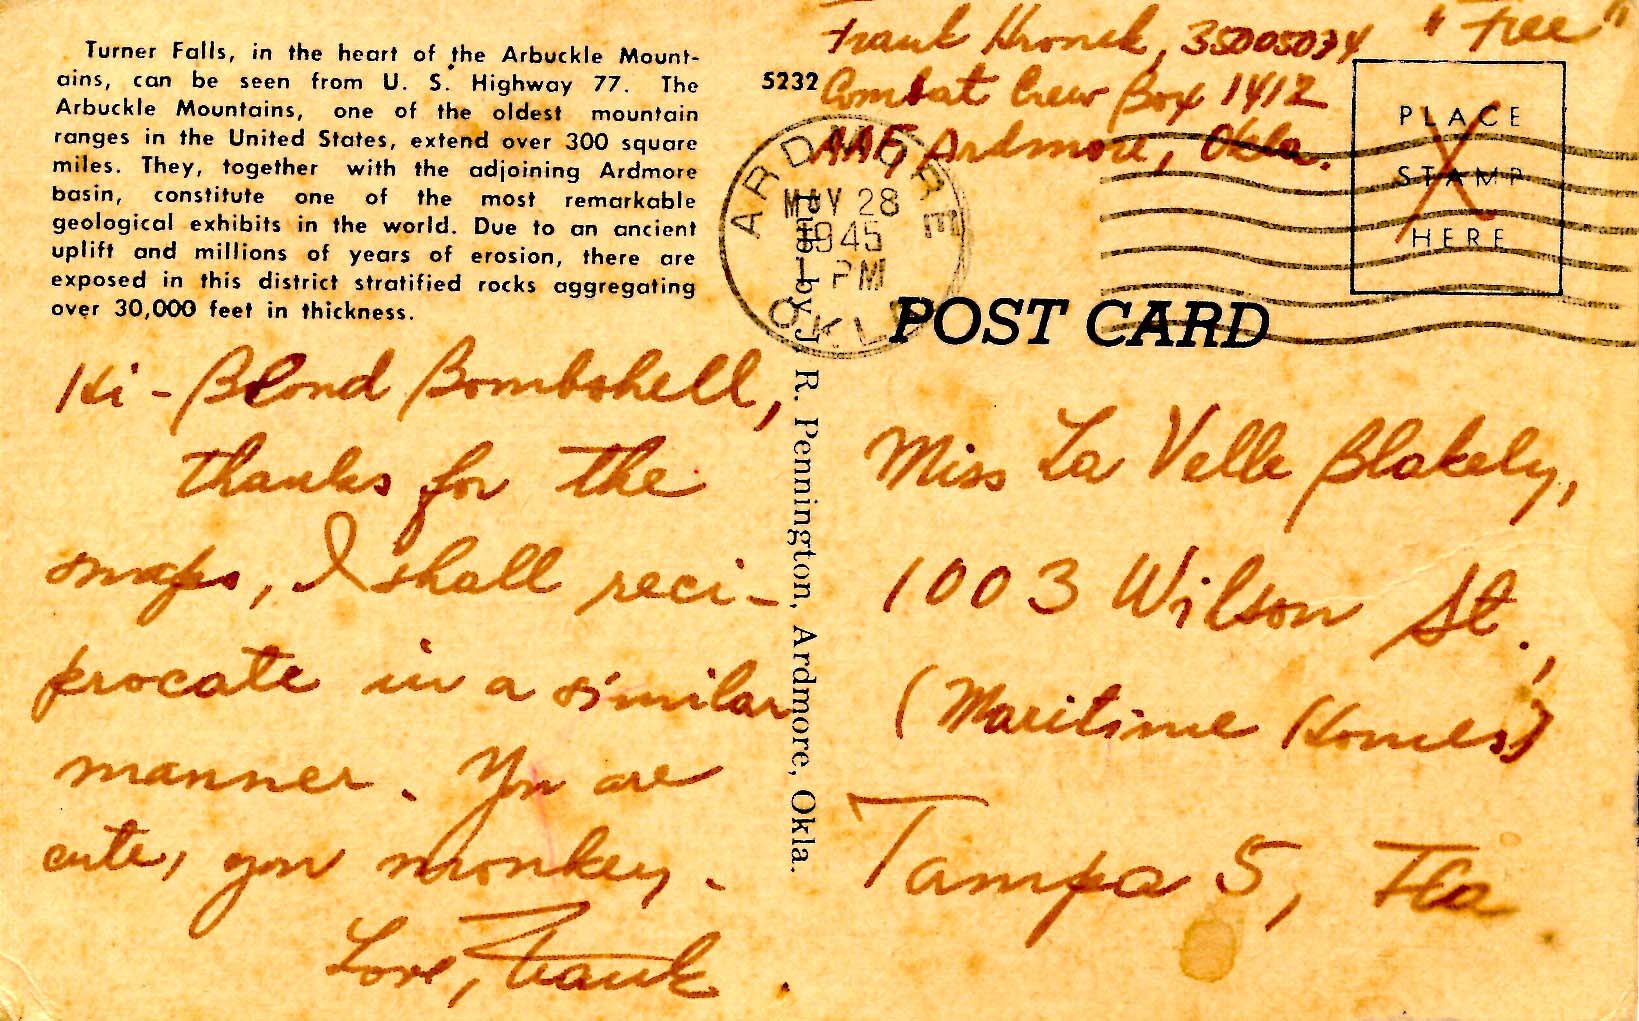 Turner Falls, in the heart of the Arbuckle Mount-
ains, can be seen from U. S. Highway 77. The
Arbuckle Mountains, one of the oldest mountain
ranges in the United States, extend over 300 square
miles. They, together with the adjoining Ardmore
basin, constitute one of the most remarkable
geological exhibits in the world. Due to an ancient
uplift and millions of years of erosion, there are
exposed in this district stratified rocks aggregating
over 30,000 feet in thickness.
5232
Frank Hronek, 35005034 "Free"
Combat Crew Box 1412
AAF, Ardmore, Okla.
ARDMORE
MAY 28
1945
1 PM
OKLA
PLACE
STAMP
HERE
POST CARD
Pub. by J. R. Pennington, Ardmore, Okla.
Hi - Blond Bombshell,
thanks for the
snaps, I shall reci-
procate in a similar
manner. You are
cute, you monkey.
Love, Frank.
Miss La Velle Blakely,
1003 Wilson St.,
(Maritime Homes)
Tampa 5, Fla